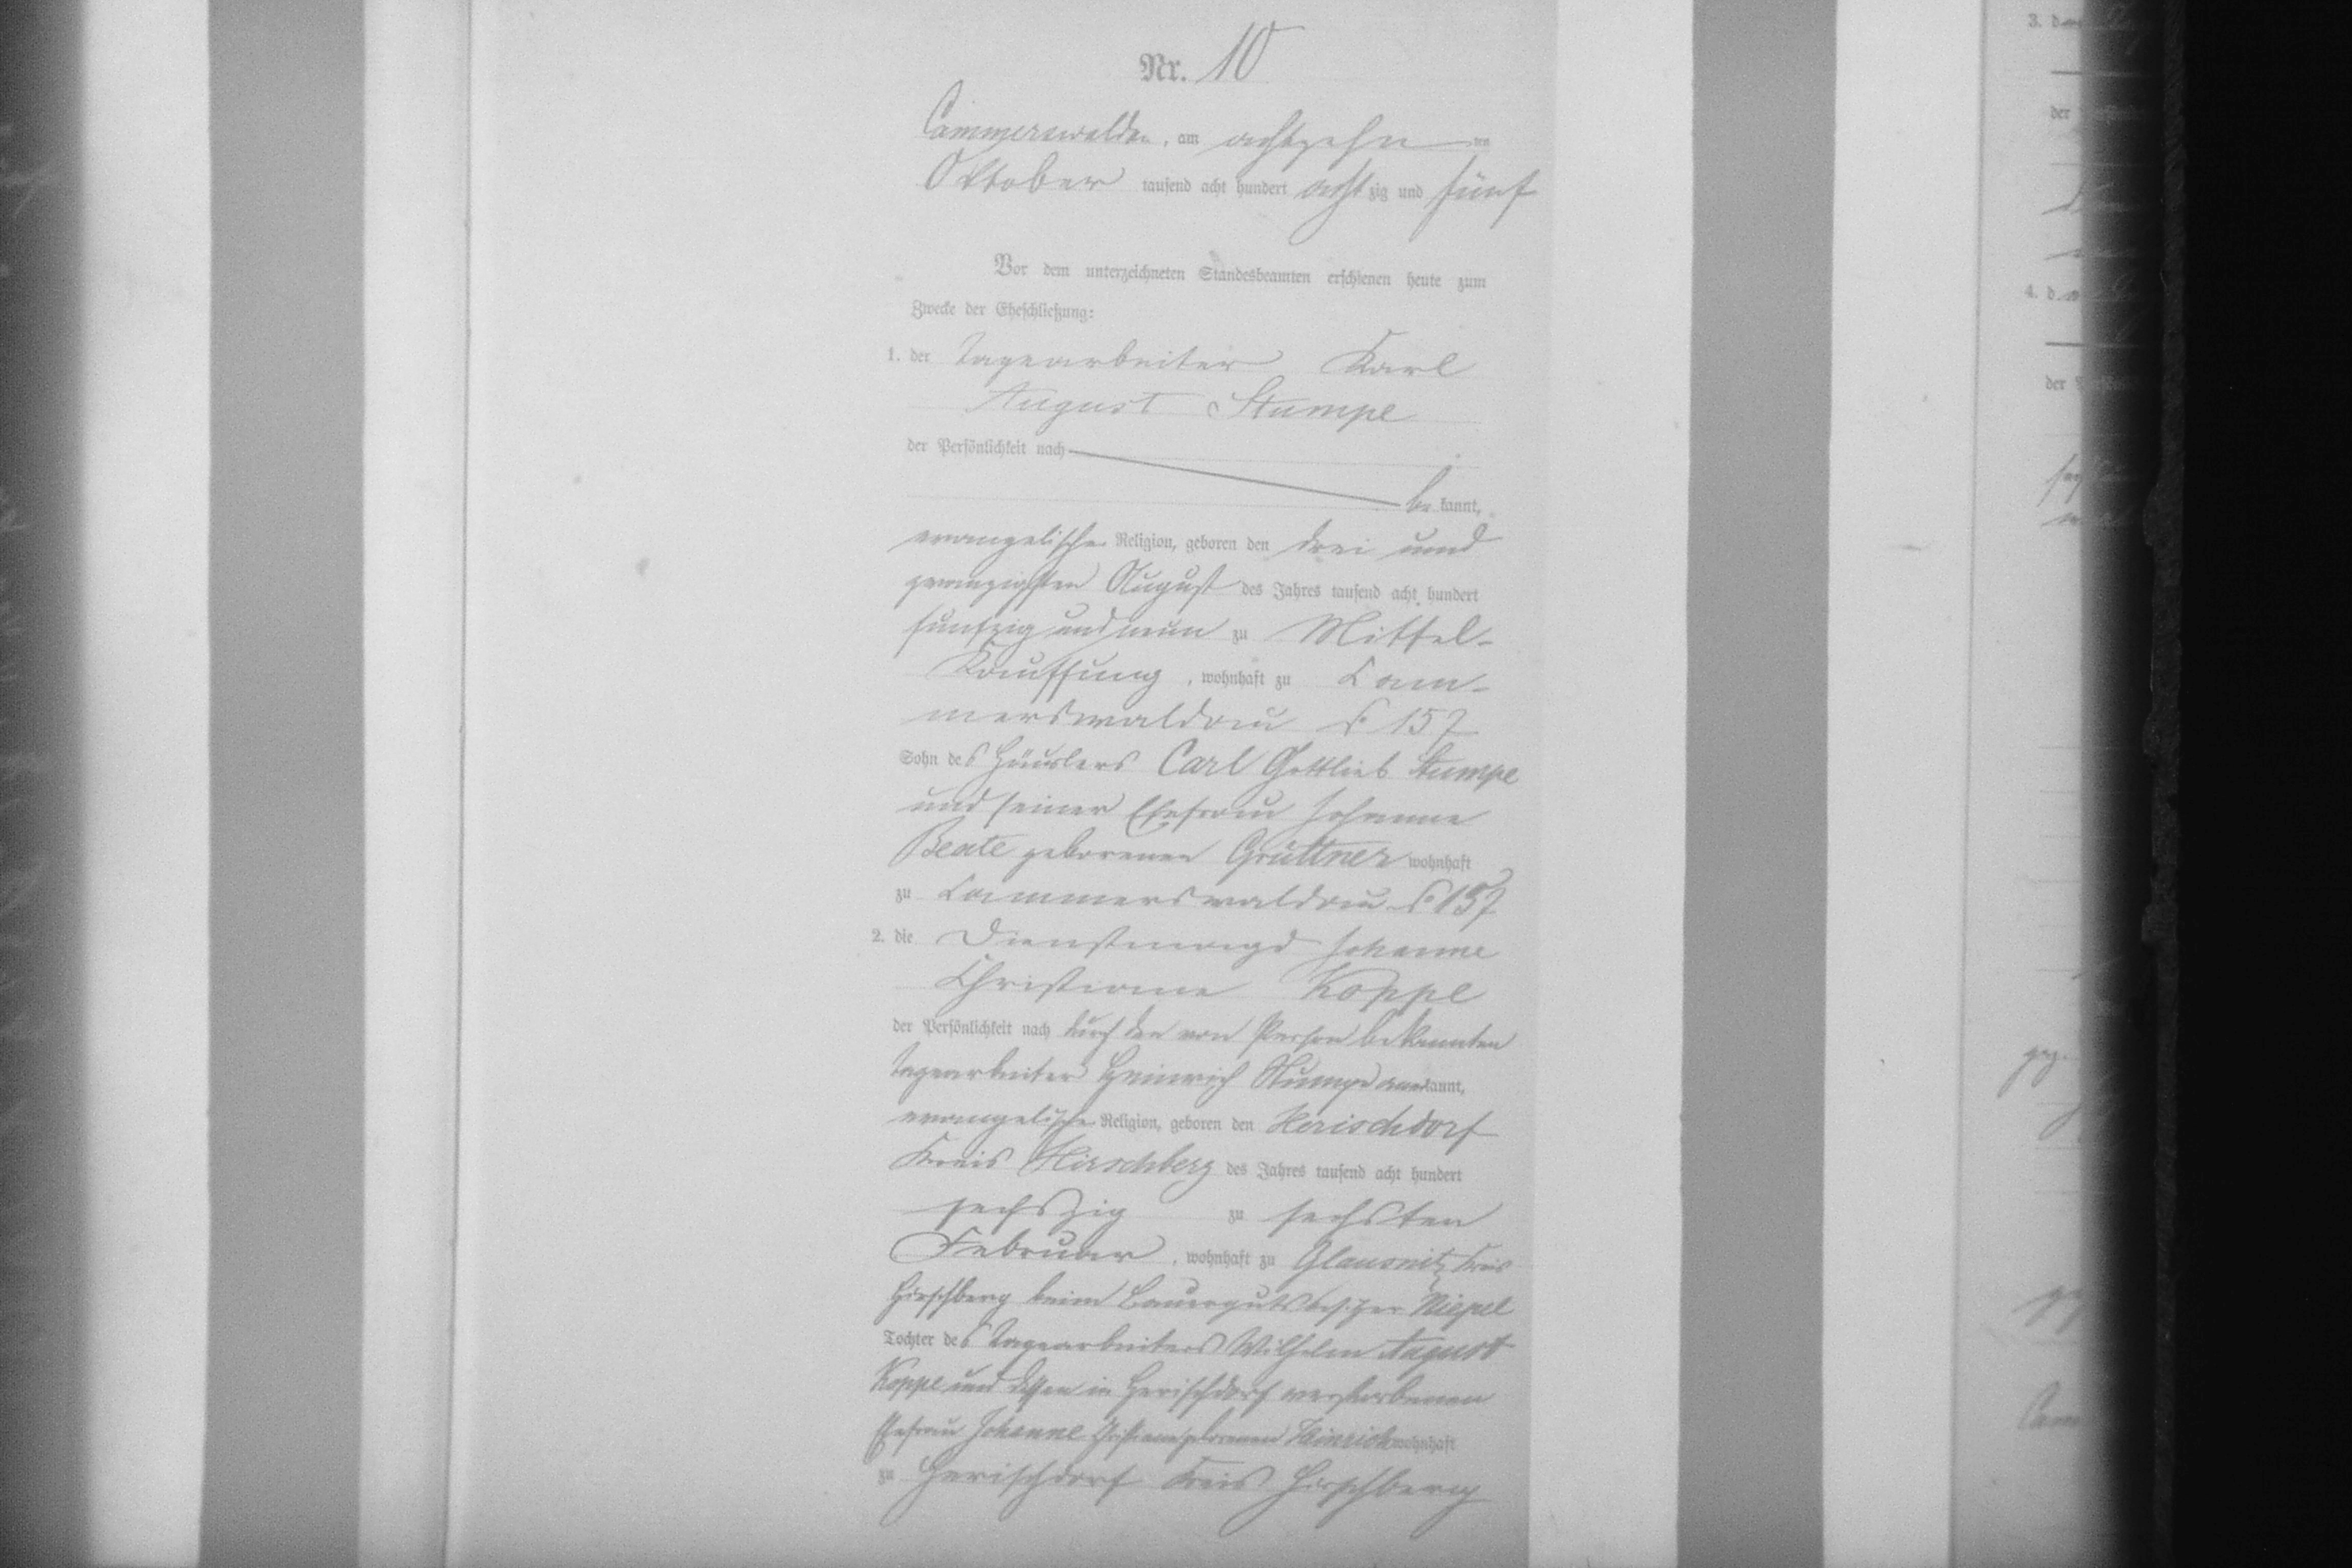 Nr. 10
Cammerswaldau, am achtzehn ten
Oktober tausend acht hundert achtzig und fünf
Vor dem unterzeichneten Standesbeamten erschienen heute zum
Zwecke der Eheschließung:
1. der Tagearbeiter Karl
August Stumpe
der Persönlichkeit nach
be kannt,
evangelischer Religion, geboren den drei und
zwanzigsten August des Jahres tausend acht hundert
funfzig und neun zu Mittel-
Kauffung, wohnhaft zu Cam-
merswaldau № 157
Sohn des Häuslers Carl Gottlieb Stumpe
und seiner Ehefrau Johanne
Beate geborenen Grüttner wohnhaft
zu Cammerswaldau № 157
2. die Dienstmagd Johanne
Christiane Koppe
der Persönlichkeit nach durch den von Person bekannten
Tagearbeiter Heinrich Stumpe anerkannt,
evangelischer Religion, geboren den Herischdorf
Kreis Hirschberg des Jahres tausend acht hundert
sechszig zu sechsten
Februar, wohnhaft zu Glausnitz Kreis
Hirschberg beim Bauergutsbesitzer Niepel
Tochter des Tagearbeiters Wilhelm August
Koppe und dessen in Herischdorf verstorbenen
Ehefrau Johanne Christiane geborenen Heinrich wohnhaft
zu Herischdorf Kreis Hirschberg
3. d
der
4. d
der